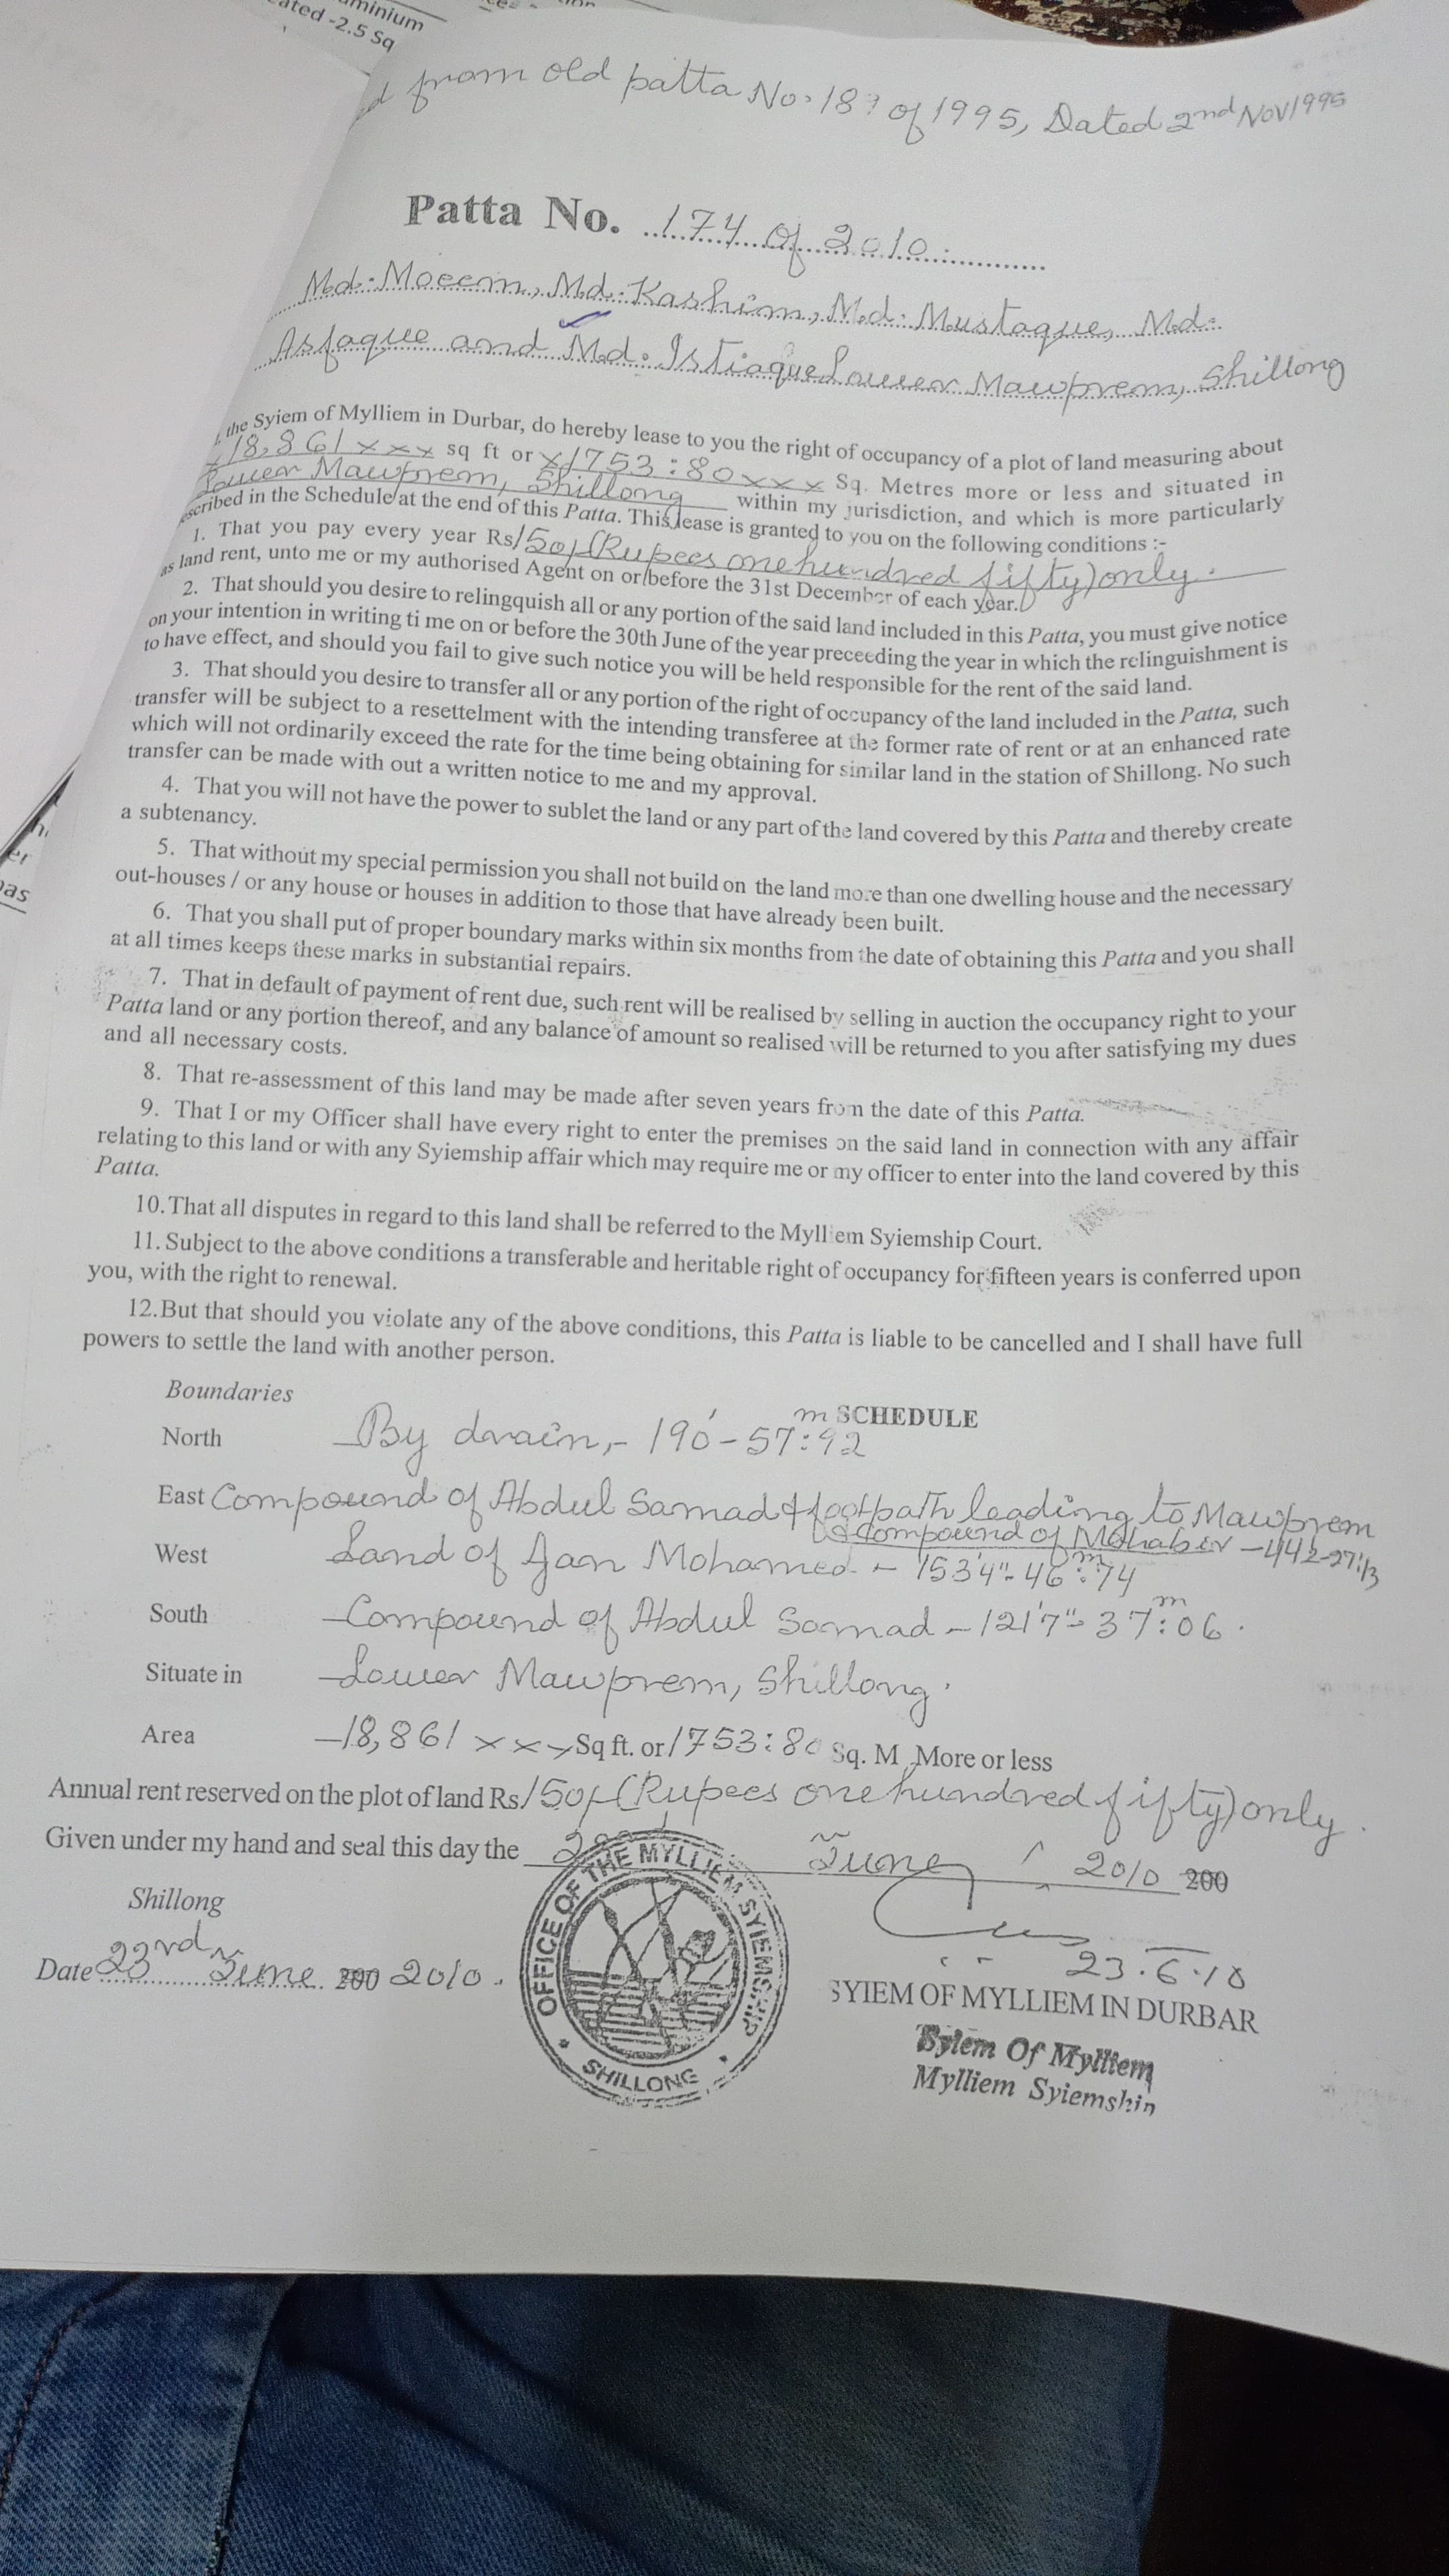 minium
ated -2.5 Sq
from old patta No. 18? of 1995, Dated 2nd Nov 1995
Patta No. 174 of 2010
Md. Moeem, Md. Kashim, Md. Mustaque, Md.
Asfaque and Md. Istiaque Lower Mawprem, Shillong
the Syiem of Mylliem in Durbar, do hereby lease to you the right of occupancy of a plot of land measuring about
18,861 x x x sq ft or x 1753:80 x x x Sq. Metres more or less and situated in
Lower Mawprem, Shillong within my jurisdiction, and which is more particularly
escribed in the Schedule at the end of this Patta. This lease is granted to you on the following conditions :-
1. That you pay every year Rs 150/- (Rupees one hundred fifty) only.
as land rent, unto me or my authorised Agent on or before the 31st December of each year.
2. That should you desire to relingquish all or any portion of the said land included in this Patta, you must give notice
on your intention in writing ti me on or before the 30th June of the year preceeding the year in which the relinguishment is
to have effect, and should you fail to give such notice you will be held responsible for the rent of the said land.
3. That should you desire to transfer all or any portion of the right of occupancy of the land included in the Patta, such
transfer will be subject to a resettelment with the intending transferee at the former rate of rent or at an enhanced rate
which will not ordinarily exceed the rate for the time being obtaining for similar land in the station of Shillong. No such
transfer can be made with out a written notice to me and my approval.
4. That you will not have the power to sublet the land or any part of the land covered by this Patta and thereby create
a subtenancy.
5. That without my special permission you shall not build on the land more than one dwelling house and the necessary
out-houses / or any house or houses in addition to those that have already been built.
6. That you shall put of proper boundary marks within six months from the date of obtaining this Patta and you shall
at all times keeps these marks in substantial repairs.
7. That in default of payment of rent due, such rent will be realised by selling in auction the occupancy right to your
Patta land or any portion thereof, and any balance of amount so realised will be returned to you after satisfying my dues
and all necessary costs.
8. That re-assessment of this land may be made after seven years from the date of this Patta.
9. That I or my Officer shall have every right to enter the premises on the said land in connection with any affair
relating to this land or with any Syiemship affair which may require me or my officer to enter into the land covered by this
Patta.
10. That all disputes in regard to this land shall be referred to the Mylliem Syiemship Court.
11. Subject to the above conditions a transferable and heritable right of occupancy for fifteen years is conferred upon
you, with the right to renewal.
12. But that should you violate any of the above conditions, this Patta is liable to be cancelled and I shall have full
powers to settle the land with another person.
Boundaries
SCHEDULE
North By drain, - 190' - 57:92 m
East Compound of Abdul Samad & footpath leading to Mawprem
& Compound of Mohabir
West Land of Jan Mohamed - 153'4" - 46:74 m
South Compound of Abdul Samad - 121'7" - 37:06 m
Situate in Lower Mawprem, Shillong.
Area 18,861 x x x Sq ft. or 1753:80 Sq. M. More or less
Annual rent reserved on the plot of land Rs 150/- (Rupees one hundred fifty) only.
Given under my hand and seal this day the June 2010 200
Shillong
Date 23rd June 200 2010.
OFFICE OF THE MYLLIEM SYIEMSHIP
SHILLONG
23.6.10
SYIEM OF MYLLIEM IN DURBAR
Syiem Of Mylliem
Mylliem Syiemship